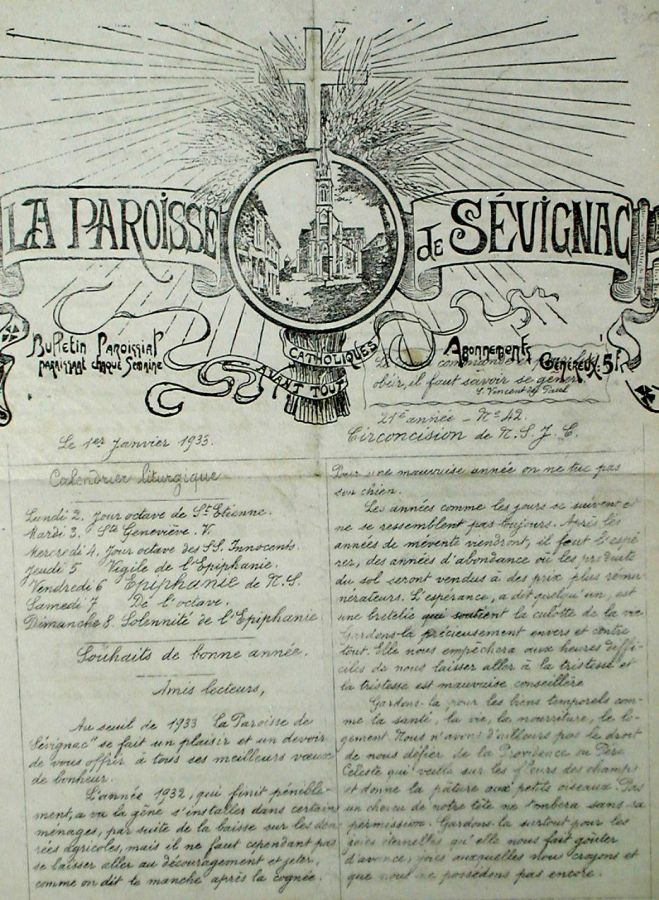 LA PAROISSE
de SÉVIGNAC
Bulletin Paroissial
paraissant chaque Semaine
CATHOLIQUES
AVANT TOUT
Abonnements
Généreux: 5f.
commande
obéir, il faut savoir se gêner
S. Vincent de Paul
21e année - No 42.
Le 1er Janvier 1933.
Circoncision de N. S. J. C.
Calendrier liturgique
Lundi 2. Jour octave de St Etienne.
Mardi 3. Ste Geneviève. V.
Mercredi 4. Jour octave des SS. Innocents.
Jeudi 5 Vigile de l'Epiphanie.
Vendredi 6 Epiphanie de N. S.
Samedi 7 De l'octave.
Dimanche 8. Solennité de l'Epiphanie
Souhaits de bonne année.
Amis lecteurs,
Au seuil de 1933 la Paroisse de
Sévignac" se fait un plaisir et un devoir
de vous offrir à tous ses meilleurs vœux
de bonheur.
L'année 1932, qui finit pénible-
ment, a vu la gêne s'installer dans certains
ménages, par suite de la baisse sur les den
rées agricoles, mais il ne faut cependant pas
se laisser aller au découragement et jeter,
comme on dit le manche après la cognée.
Pour une mauvaise année on ne tue pas
son chien.
Les années comme les jours se suivent et
ne se ressemblent pas toujours. Après les
années de mévente viendront, il faut l'espé
rer, des années d'abondance où les produits
du sol seront vendus à des prix plus rému-
nérateurs. L'espérance, a dit quelqu'un, est
une bretelle qui soutient la culotte de la vie
Gardons-la précieusement envers et contre
tout. Elle nous empêchera aux heures diffi-
ciles de nous laisser aller à la tristesse et
la tristesse est mauvaise conseillère
Gardons-la pour les biens temporels com-
me la santé, la vie, la nourriture, le lo-
gement Nous n'avons d'ailleurs pas le droit
de nous défier de la Providence du Père
Céleste qui veille sur les fleurs des champs
et donne la pâture aux petits oiseaux. Pas
un cheveu de notre tête ne tombera sans sa
permission. Gardons-la surtout pour les
joies éternelles qu'elle nous fait goûter
d'avance, joies auxquelles nous croyons et
que nous ne possédons pas encore.